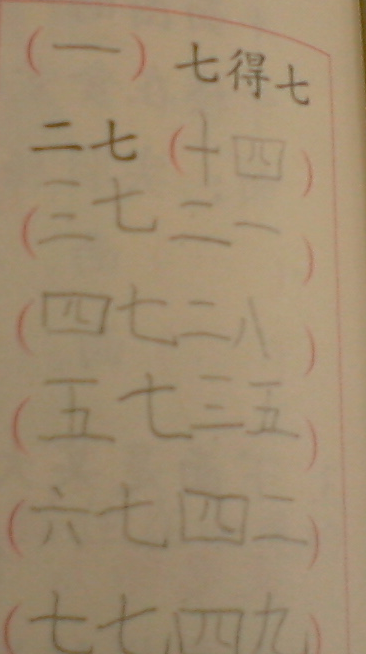 (一)七得七
二七(十四)
(三七二一)
(四七二八)
(五七三五)
(六七四二)
(七七四九)